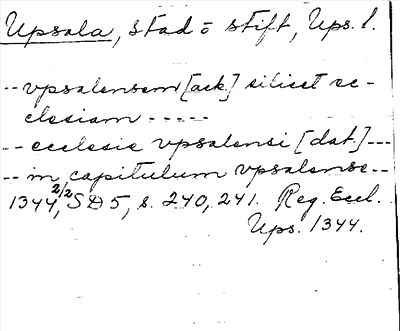 Upsala, stad o stift, Ups. l.
-- vpsalensem [ack.] silicet ec-
clesiam -----
-- ecclesie vpsalensi [dat.] ---
-- in capitulum vpsalense --
1344 2/2, SD 5, s. 240, 241. Reg. Eccl.
Ups. 1344.